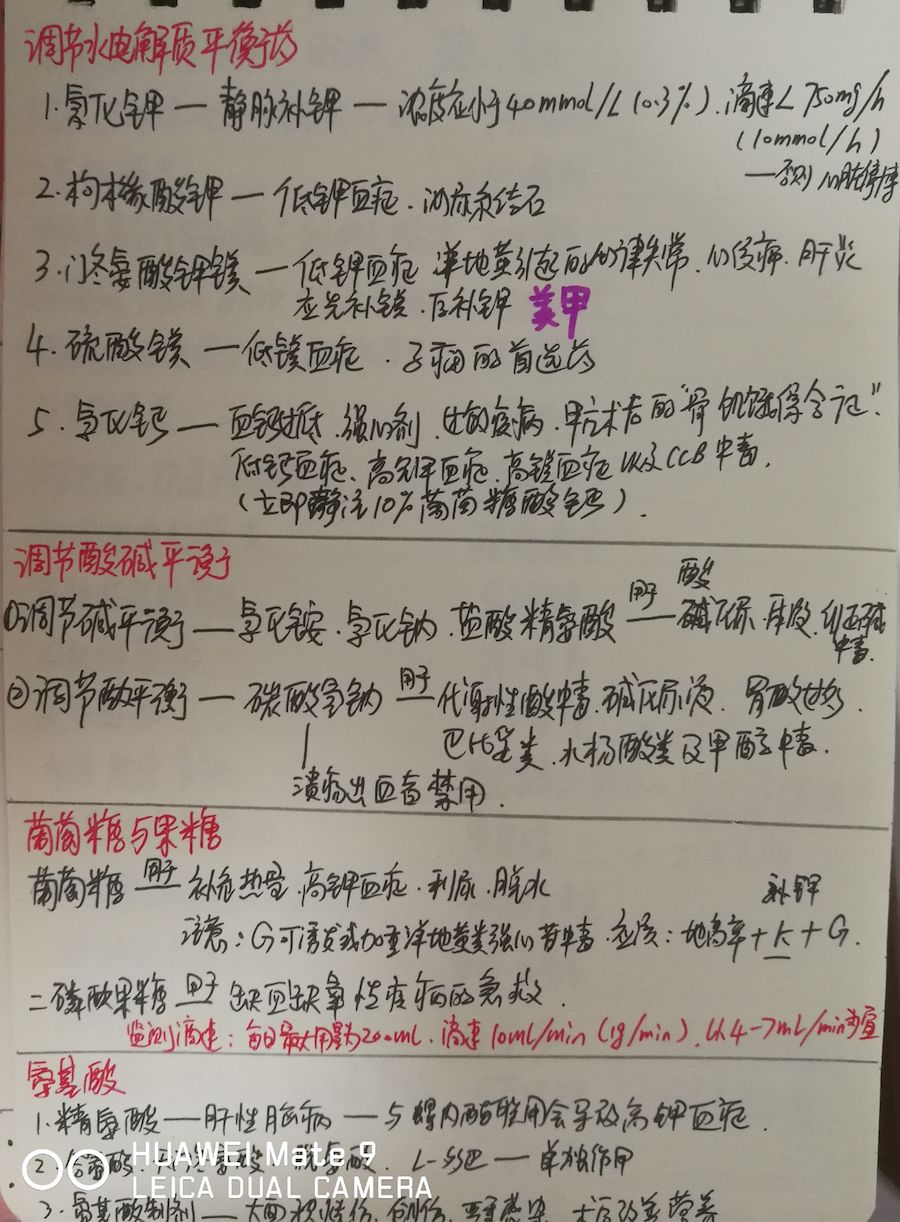 调节水电解质平衡药
1.氯化钾 — 静脉补钾 — 浓度应小于40mmol/L(0.3%).滴速<750mg/h
(10mmol/h)
—否则心脏停搏
2.枸橼酸钾 — 低钾血症.泌尿系结石
3.门冬氨酸钾镁 — 低钾血症 洋地黄引起的心律失常.心肌病.肝炎
应先补镁.后补钾 美甲
4.硫酸镁 — 低镁血症.子痫的首选药
5.氯化钙 — 血钙过低.强心剂.过敏疾病.甲亢术后的"骨饥饿综合征".
低钙血症、高钾血症、高镁血症以及CCB中毒.
(立即静注10%葡萄糖酸钙).
调节酸碱平衡
①调节碱平衡 — 氯化铵.氯化钠.盐酸精氨酸 用于 酸 碱化尿 碱
中毒.
②调节酸平衡 — 碳酸氢钠 用于 代谢性酸中毒.碱化尿液.胃酸过多.
巴比妥类.水杨酸类及甲醇中毒.
溃疡出血者禁用.
葡萄糖与果糖
葡萄糖 用于 补充热量.高钾血症.利尿.脱水
补钾
注意:G可诱发或加重洋地黄类强心苷中毒.应该:地高辛+K+G.
二磷酸果糖 用于 缺血缺氧性疾病的急救.
监测滴速:每日最大用量为200mL.滴速10ml/min(1g/min).以4-7mL/min为宜
氨基酸
1.精氨酸 — 肝性脑病 — 与螺内酯联用会导致高钾血症.
2.谷氨酸. L- — 单独作用
3.氨基酸制剂 — 大面积烧伤.创伤.严重感染.术后改善营养
HUAWEI Mate 9
LEICA DUAL CAMERA